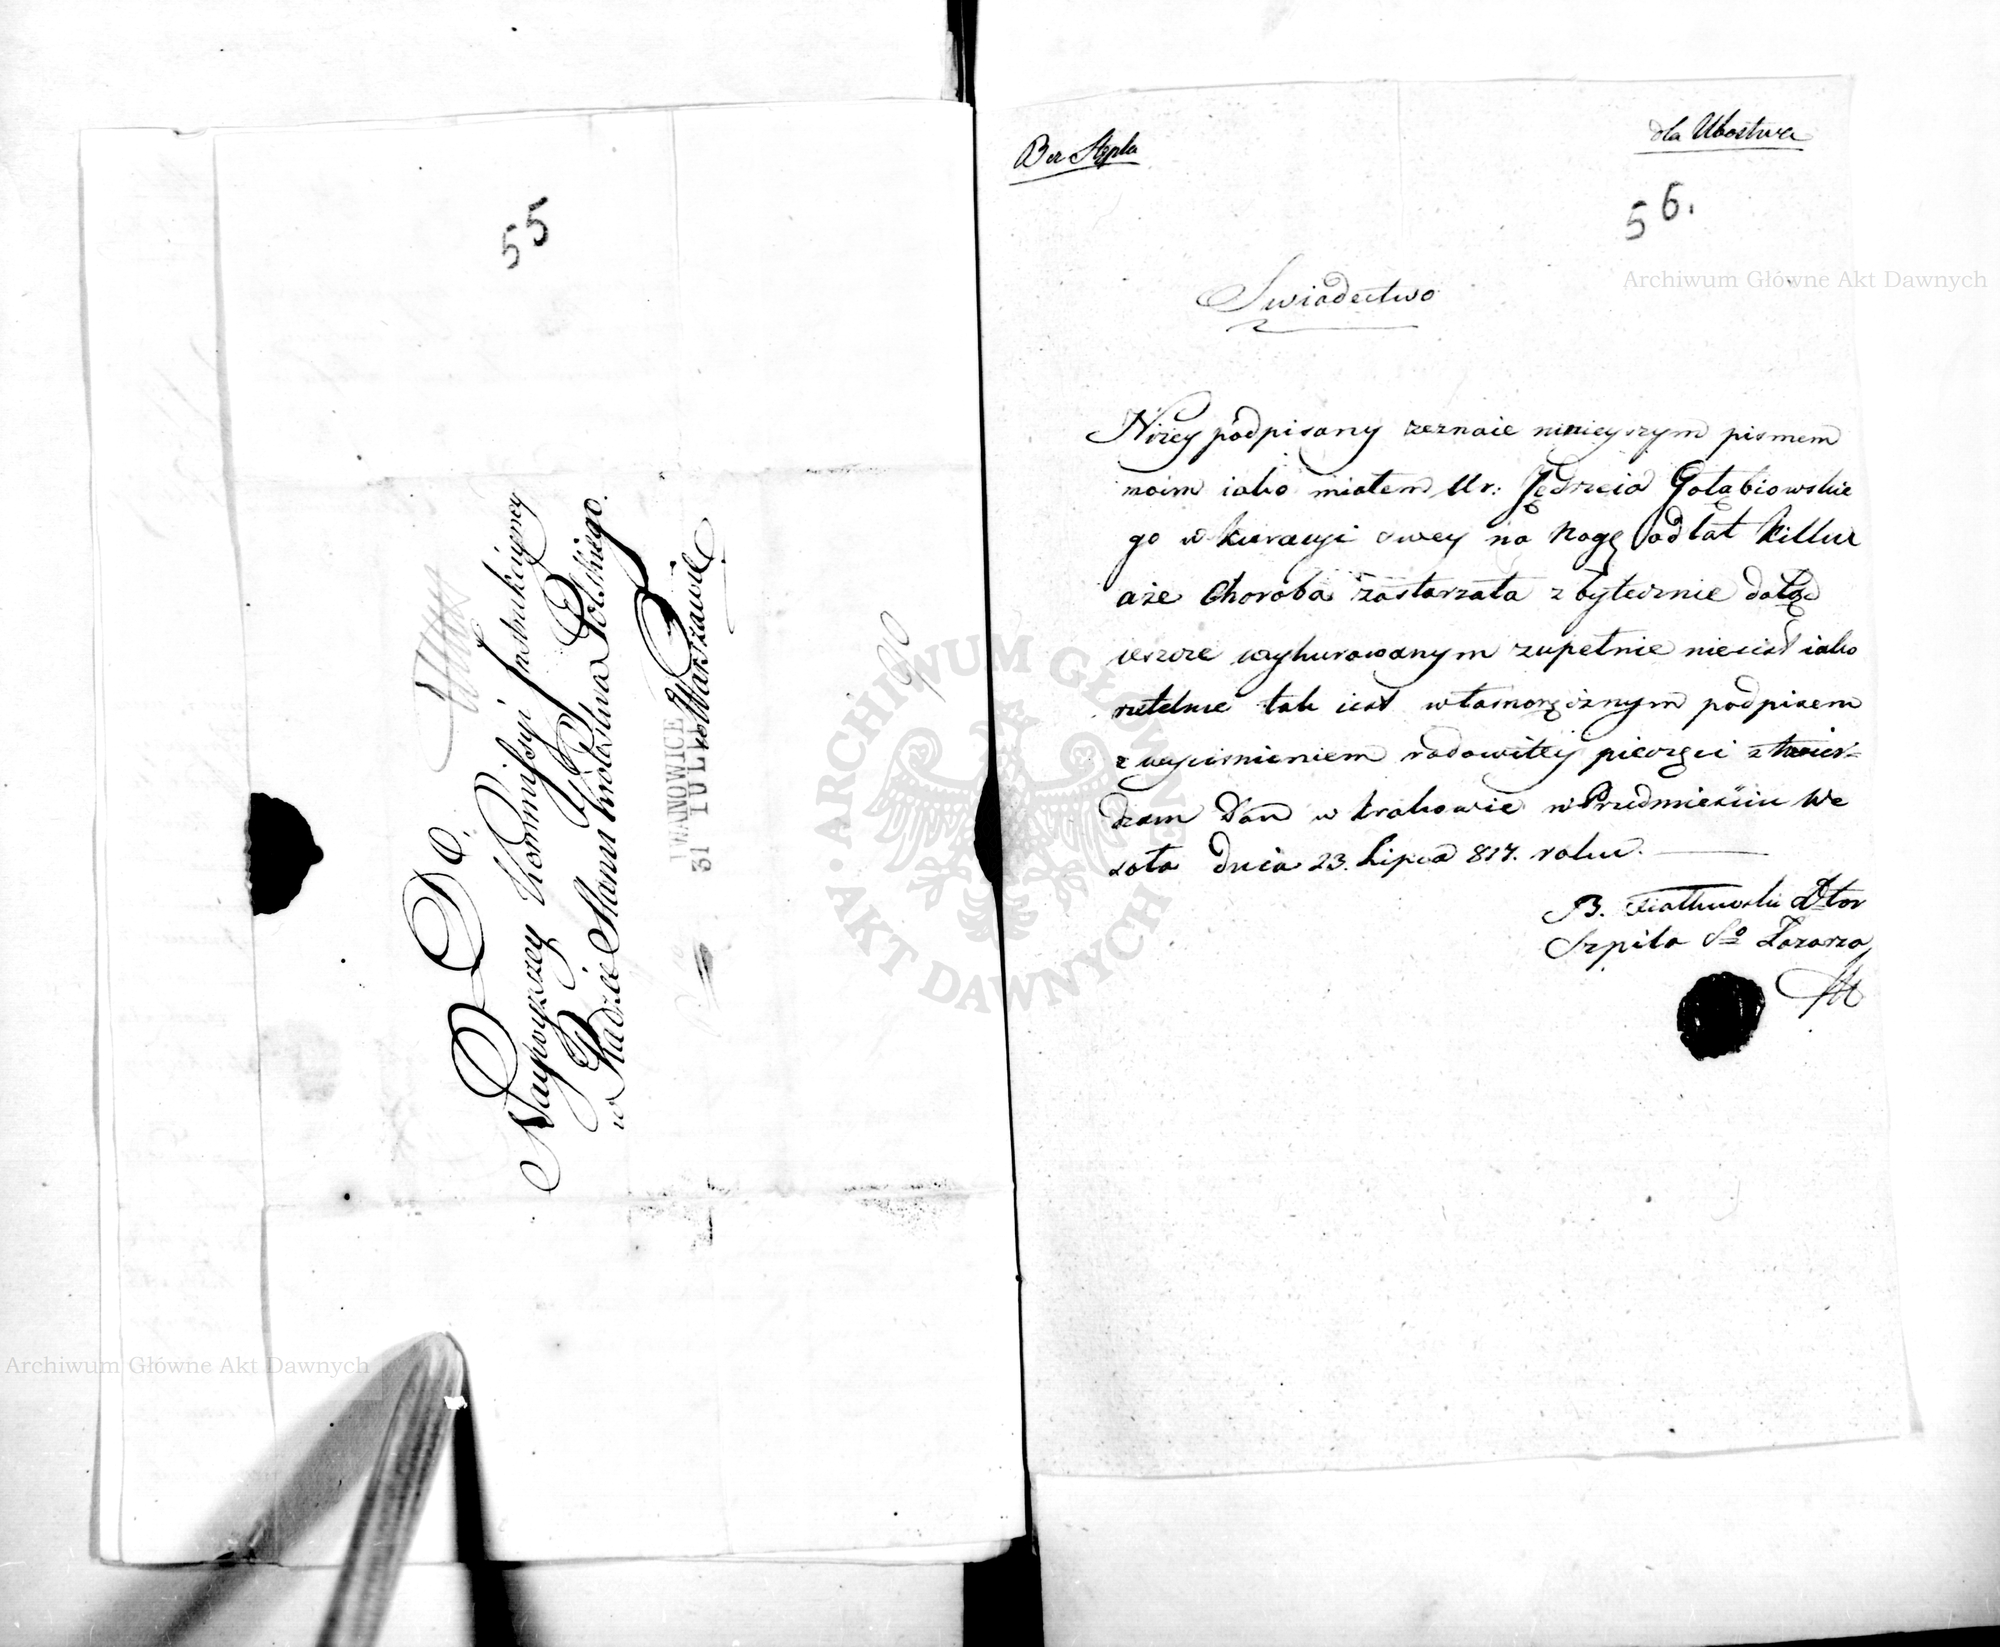 55
Do
Naywyzszey Kommissyi Instrukcyiney
Przy
w Radzie Stanu Królestwa Polskiego.
w Warszawie
IWANOWICE
31 IULI
Bez Stępla
dla Ubostwa
56.
Swiadectwo
Niżey podpisany zeznaie ninieyszym pismem
moim iako miałem Ur: Jędrzeia Gołąbiowskie
go w kuracyi swey na Nogę od lat Killku
aże Choroba zastarzała zbytecznie dotąd
ieszcze wykurowanym zupełnie nieiest iako
rzetelnie tak iest własnoręcznym podpisem
z wyciśnieniem rodowitey pieczęci ztwier-
dzam Dan w Krakowie w Przedmieściu We
soła dnia 23. Lipca 817. roku.
B. Fiałkowski Dktor
Szpitla So Łazarza
Archiwum Główne Akt Dawnych
Archiwum Główne Akt Dawnych
ARCHIWUM GŁÓWNE AKT DAWNYCH